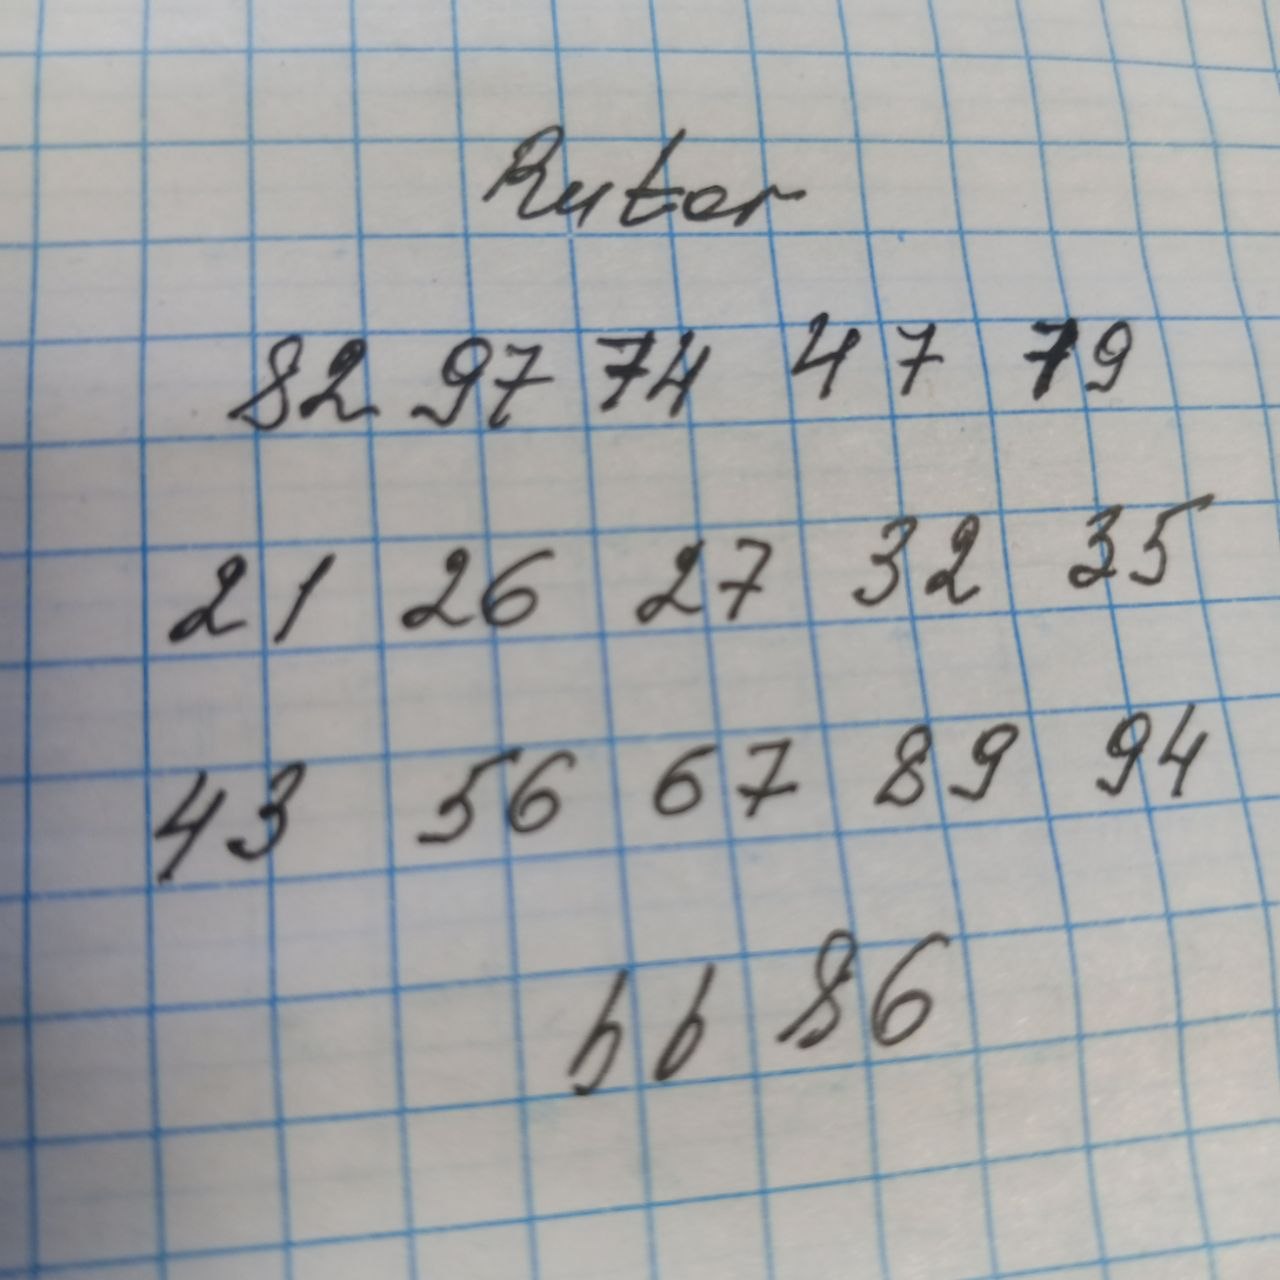 Rutor
82 97 74 47 79
21 26 27 32 35
43 56 67 89 94
86